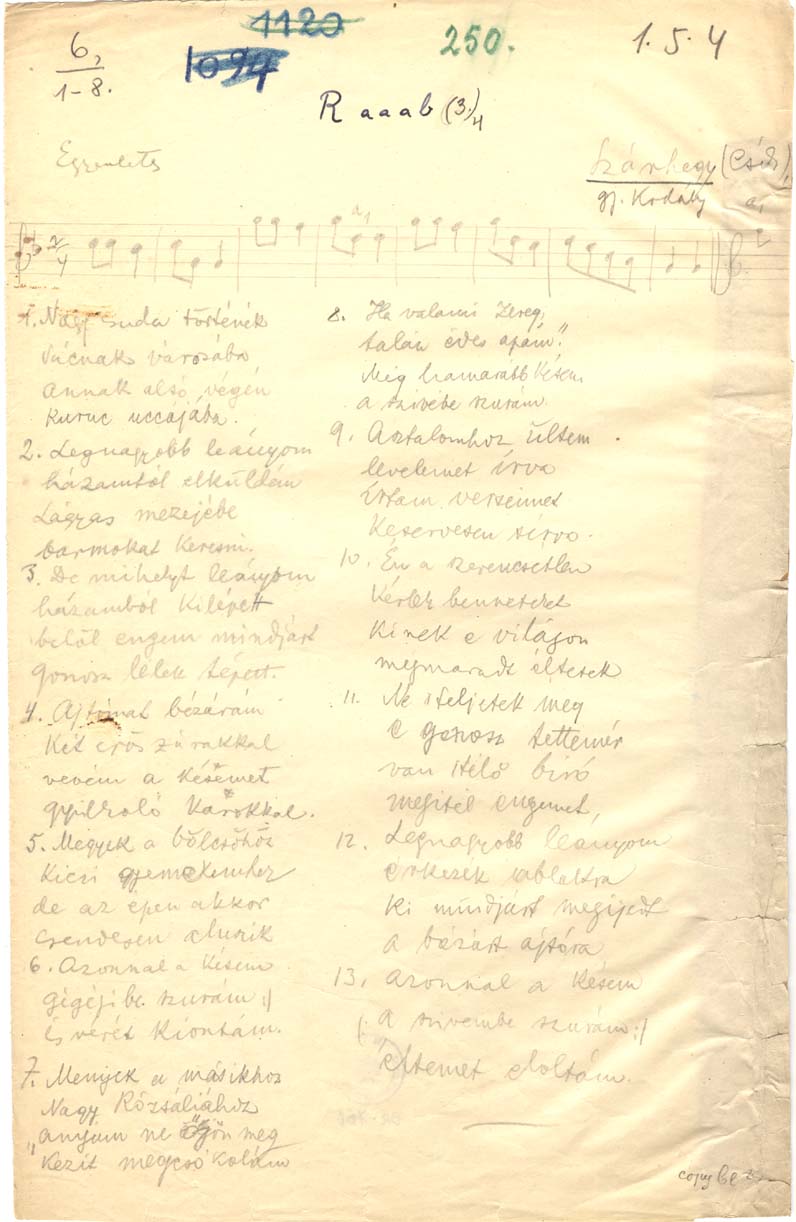 6,
1-8.
1120
1094
250.
1.5.4
Raaab (3.)/4
Egyenletes
Szárhegy (Csík),
gy. Kodály
2/4
1. Nagy csuda történék
Vácnak városába
annak alsó végén
Kuruc uccájába.
2. Legnagyobb leányom
házamtól elküldém
Lágyas mezejébe
barmokat keresni.
3. De mihelyt leányom
házamból kilépett
belől engem mindjárt
gonosz lélek tépett.
4. Ajtómat bézárám
Két erős zárakkal
vevém a késemet
gyilkoló karokkal.
5. Megyek a bölcsőhöz
Kicsi gyemekemhez
de az épen akkor
csendesen aluszik
6. Azonnal a késem
gégéjibe szurám :)
és vérét kiontám.
7. Menyek a másikhoz
Nagy Rózsáliához
"anyám ne öljön meg
Kezit megcsókolám
8. Ha valami zereg,
talán édes apám."
Még hamarább késem
a szivébe szurám
9. Asztalomhoz ültem
levelemet írva
Írtam verseimet
Keservesen sirva.
10. Én a szerencsétlen
Kérlek benneteket
Kinek e világon
megmaradt éltetek
11. Ne itéljetek meg
e gonosz tettemér
van itélő biró
megitél engemet,
12. Legnagyobb leányom
érkezék ablakra
Ki mindjárt megijedt
a bézárt ajtóra
13. azonnal a késem
(: a szivembe szurám :)
éltemet eloltám.